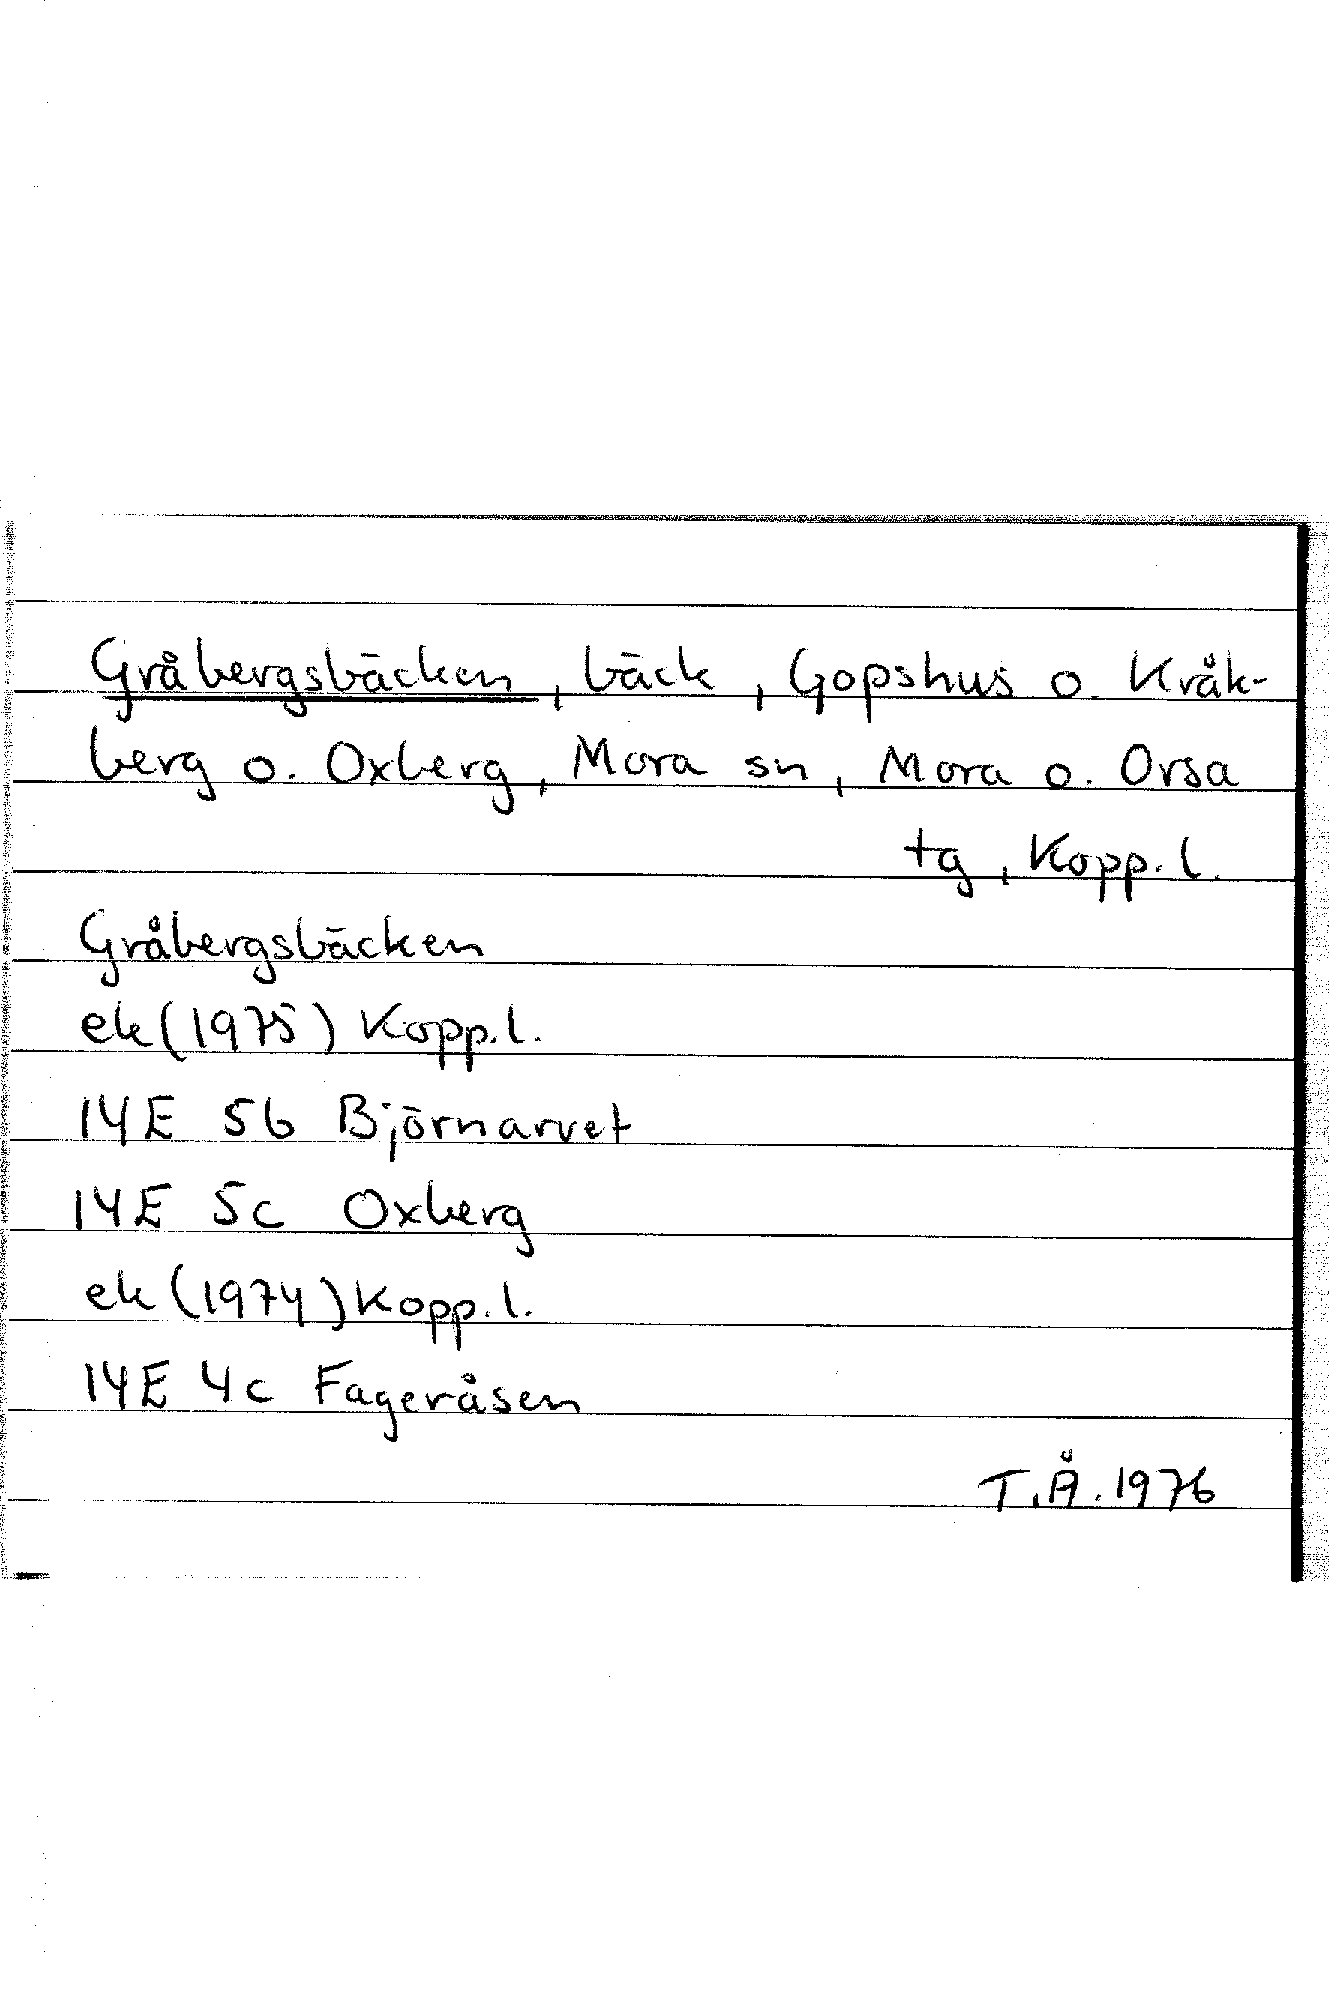 Gråbergsbäcken, bäck, Gopshus o. Kråk-
berg o. Oxberg, Mora sn, Mora o. Orsa
tg, Kopp.l.
Gråbergsbäcken
ek(1975) Kopp.l.
14E 5b Björnarvet
14E 5c Oxberg
ek(1974) Kopp.l.
14E 4c Fageråsen
T.Å.1976